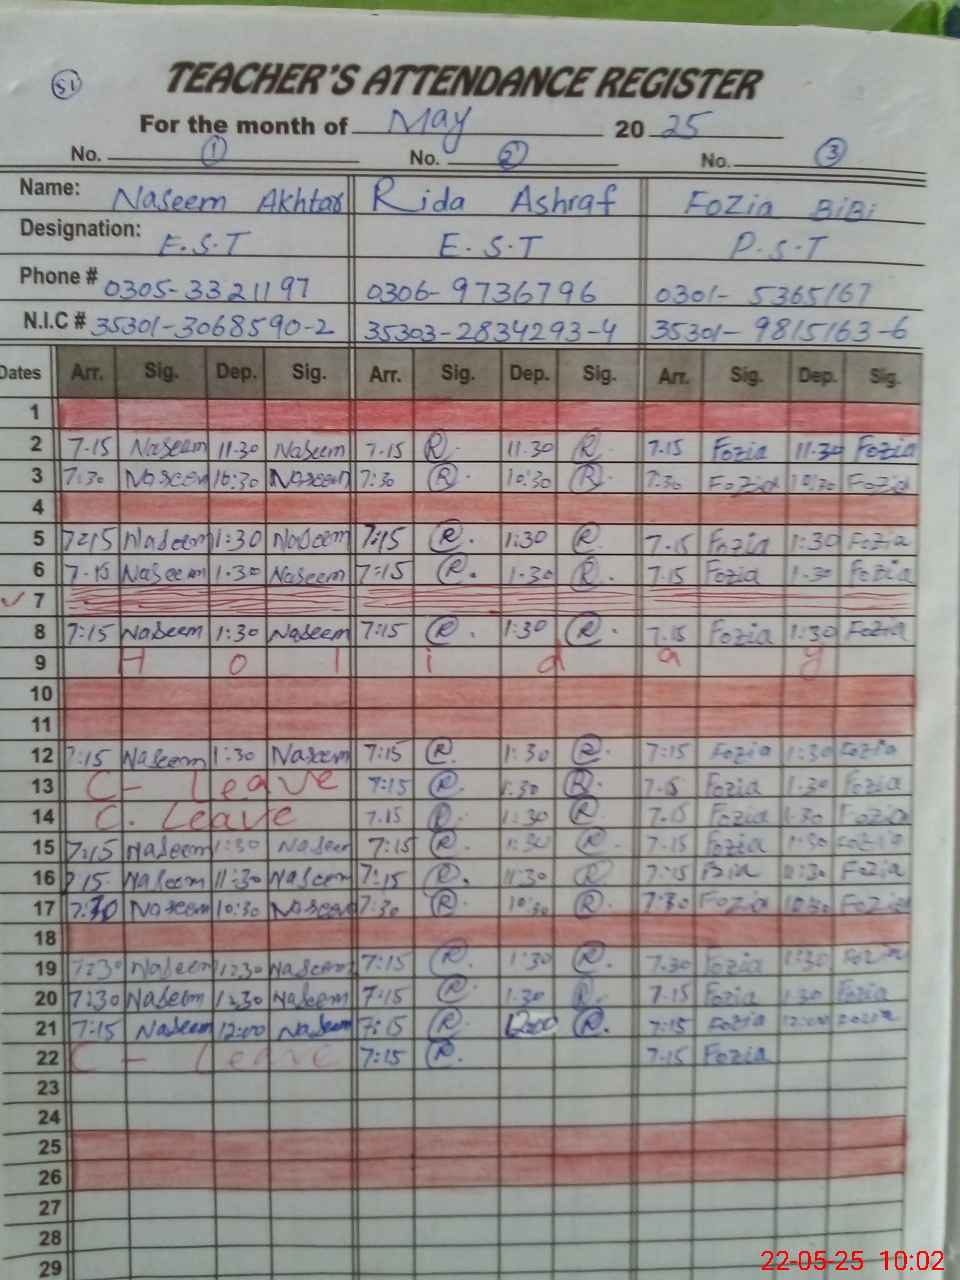 51
TEACHER'S ATTENDANCE REGISTER
For the month of May 2025
No. 1 No. 2 No. 3
Name: Naseem Akhtar Rida Ashraf Fozia BiBi
Designation: E.S.T E.S.T P.S.T
Phone # 0305-3321197 0306-9736796 0301-5365167
N.I.C # 35301-3068590-2 35303-2834293-4 35301-9815163-6
Dates Arr. Sig. Dep. Sig. Arr. Sig. Dep. Sig. Arr. Sig. Dep. Sig.
1
2 7.15 Naseem 11.30 Naseem 7.15 R. 11.30 R. 7.15 Fozia 11.30 Fozia
3 7:30 Naseem 10:30 Naseem 7:30 R. 10:30 R. 7:30 Fozia 10:30 Fozia
4
5 7:15 Naseem 1:30 Naseem 7:15 R. 1:30 R. 7.15 Fozia 1:30 Fozia
6 7.15 Naseem 1.30 Naseem 7:15 R. 1.30 R. 7.15 Fozia 1.30 Fozia
7
8 7:15 Naseem 1:30 Naseem 7:15 R. 1:30 R. 7.15 Fozia 1:30 Fozia
9 Holiday
10
11
12 7:15 Naseem 1:30 Naseem 7:15 R. 1:30 R. 7:15 Fozia 1:30 Fozia
13 C- Leave 7:15 R. 1.30 R. 7.15 Fozia 1.30 Fozia
14 C. Leave 7.15 R. 1:30 R. 7.15 Fozia 1.30 Fozia
15 7:15 Naseem 1:30 Naseem 7:15 R. 1:30 R. 7.15 Fozia 1:30 Fozia
16 7:15 Naseem 11:30 Naseem 7:15 R. 11:30 R. 7:15 11:30 Fozia
17 7:30 Naseem 10:30 Naseem 7:30 R. 10:30 R. 7:30 Fozia 10:30 Fozia
18
19 7:30 Naseem 1:30 Naseem 7:15 R. 1:30 R. 7.30 Fozia 1:30 Fozia
20 7:30 Naseem 1:30 Naseem 7:15 R. 1.30 R. 7.15 Fozia 1.30 Fozia
21 7:15 Naseem 12:00 Naseem 7:15 R. 12:00 R. 7:15 Fozia 12:00 Fozia
22 C - Leave 7:15 R. 7.15 Fozia
23
24
25
26
27
28
29
22-05-25 10:02